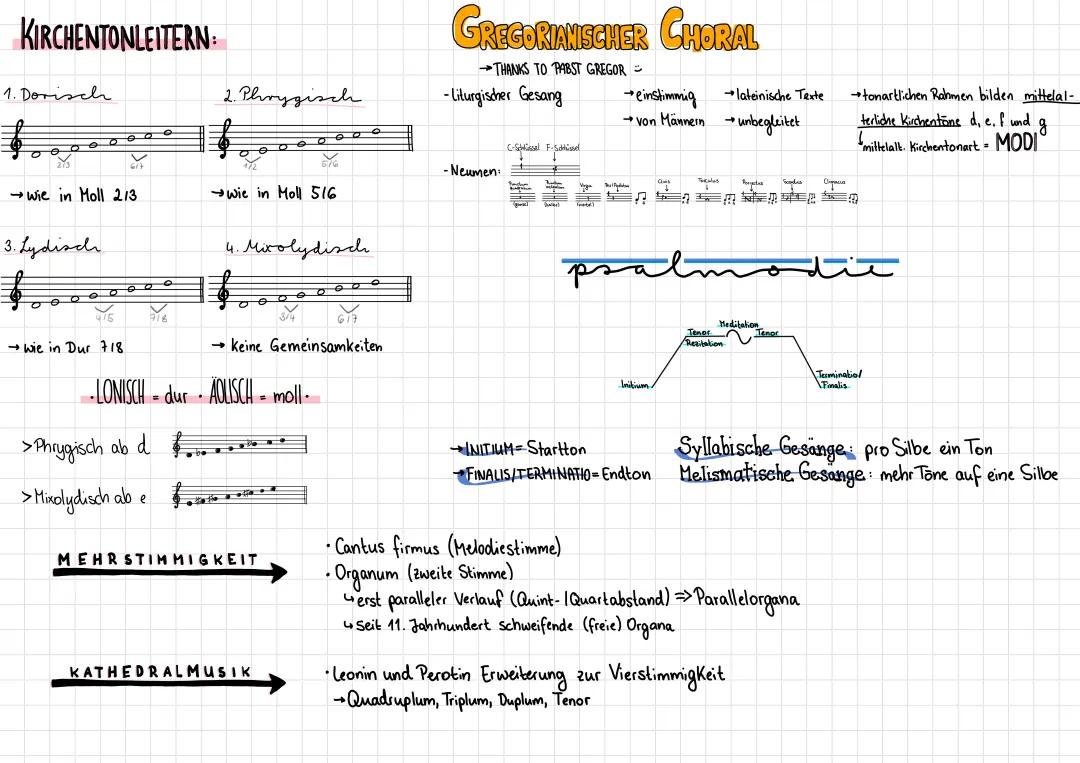 KIRCHENTONLEITERN:
1. Dorisch
2/3 6/7
→ wie in Moll 2/3
2. Phrygisch
1/2 5/6
→ wie in Moll 5/6
3. Lydisch
4/5 7/8
→ wie in Dur 7/8
4. Mixolydisch
3/4 6/7
→ keine Gemeinsamkeiten
• IONISCH = dur • ÄOLISCH = moll •
> Phrygisch ab d
> Mixolydisch ab e
GREGORIANISCHER CHORAL
→ THANKS TO PABST GREGOR
- Liturgischer Gesang
→ einstimmig
→ von Männern
→ lateinische Texte
→ unbegleitet
→ tonartlichen Rahmen bilden mittelal-
terliche Kirchentöne d, e, f und g
↳ mittelalt. Kirchentonart = MODI
- Neumen:
C-Schlüssel F-Schlüssel
Punctum
Virga
Clivis
Torculus
Porrectus
Scandicus
Climacus
psalmodie
Meditation
Tenor Tenor
Rezitation
Initium
Terminatio/
Finalis
→ INITIUM = Startton
→ FINALIS/TERMINATIO = Endton
Syllabische Gesänge: pro Silbe ein Ton
Melismatische Gesänge: mehr Töne auf eine Silbe
MEHRSTIMMIGKEIT
• Cantus firmus (Melodiestimme)
• Organum (zweite Stimme)
↳ erst paralleler Verlauf (Quint-/Quartabstand) ⇒ Parallelorgana
↳ seit 11. Jahrhundert schweifende (freie) Organa
KATHEDRALMUSIK
• Leonin und Perotin Erweiterung zur Vierstimmigkeit
→ Quadruplum, Triplum, Duplum, Tenor